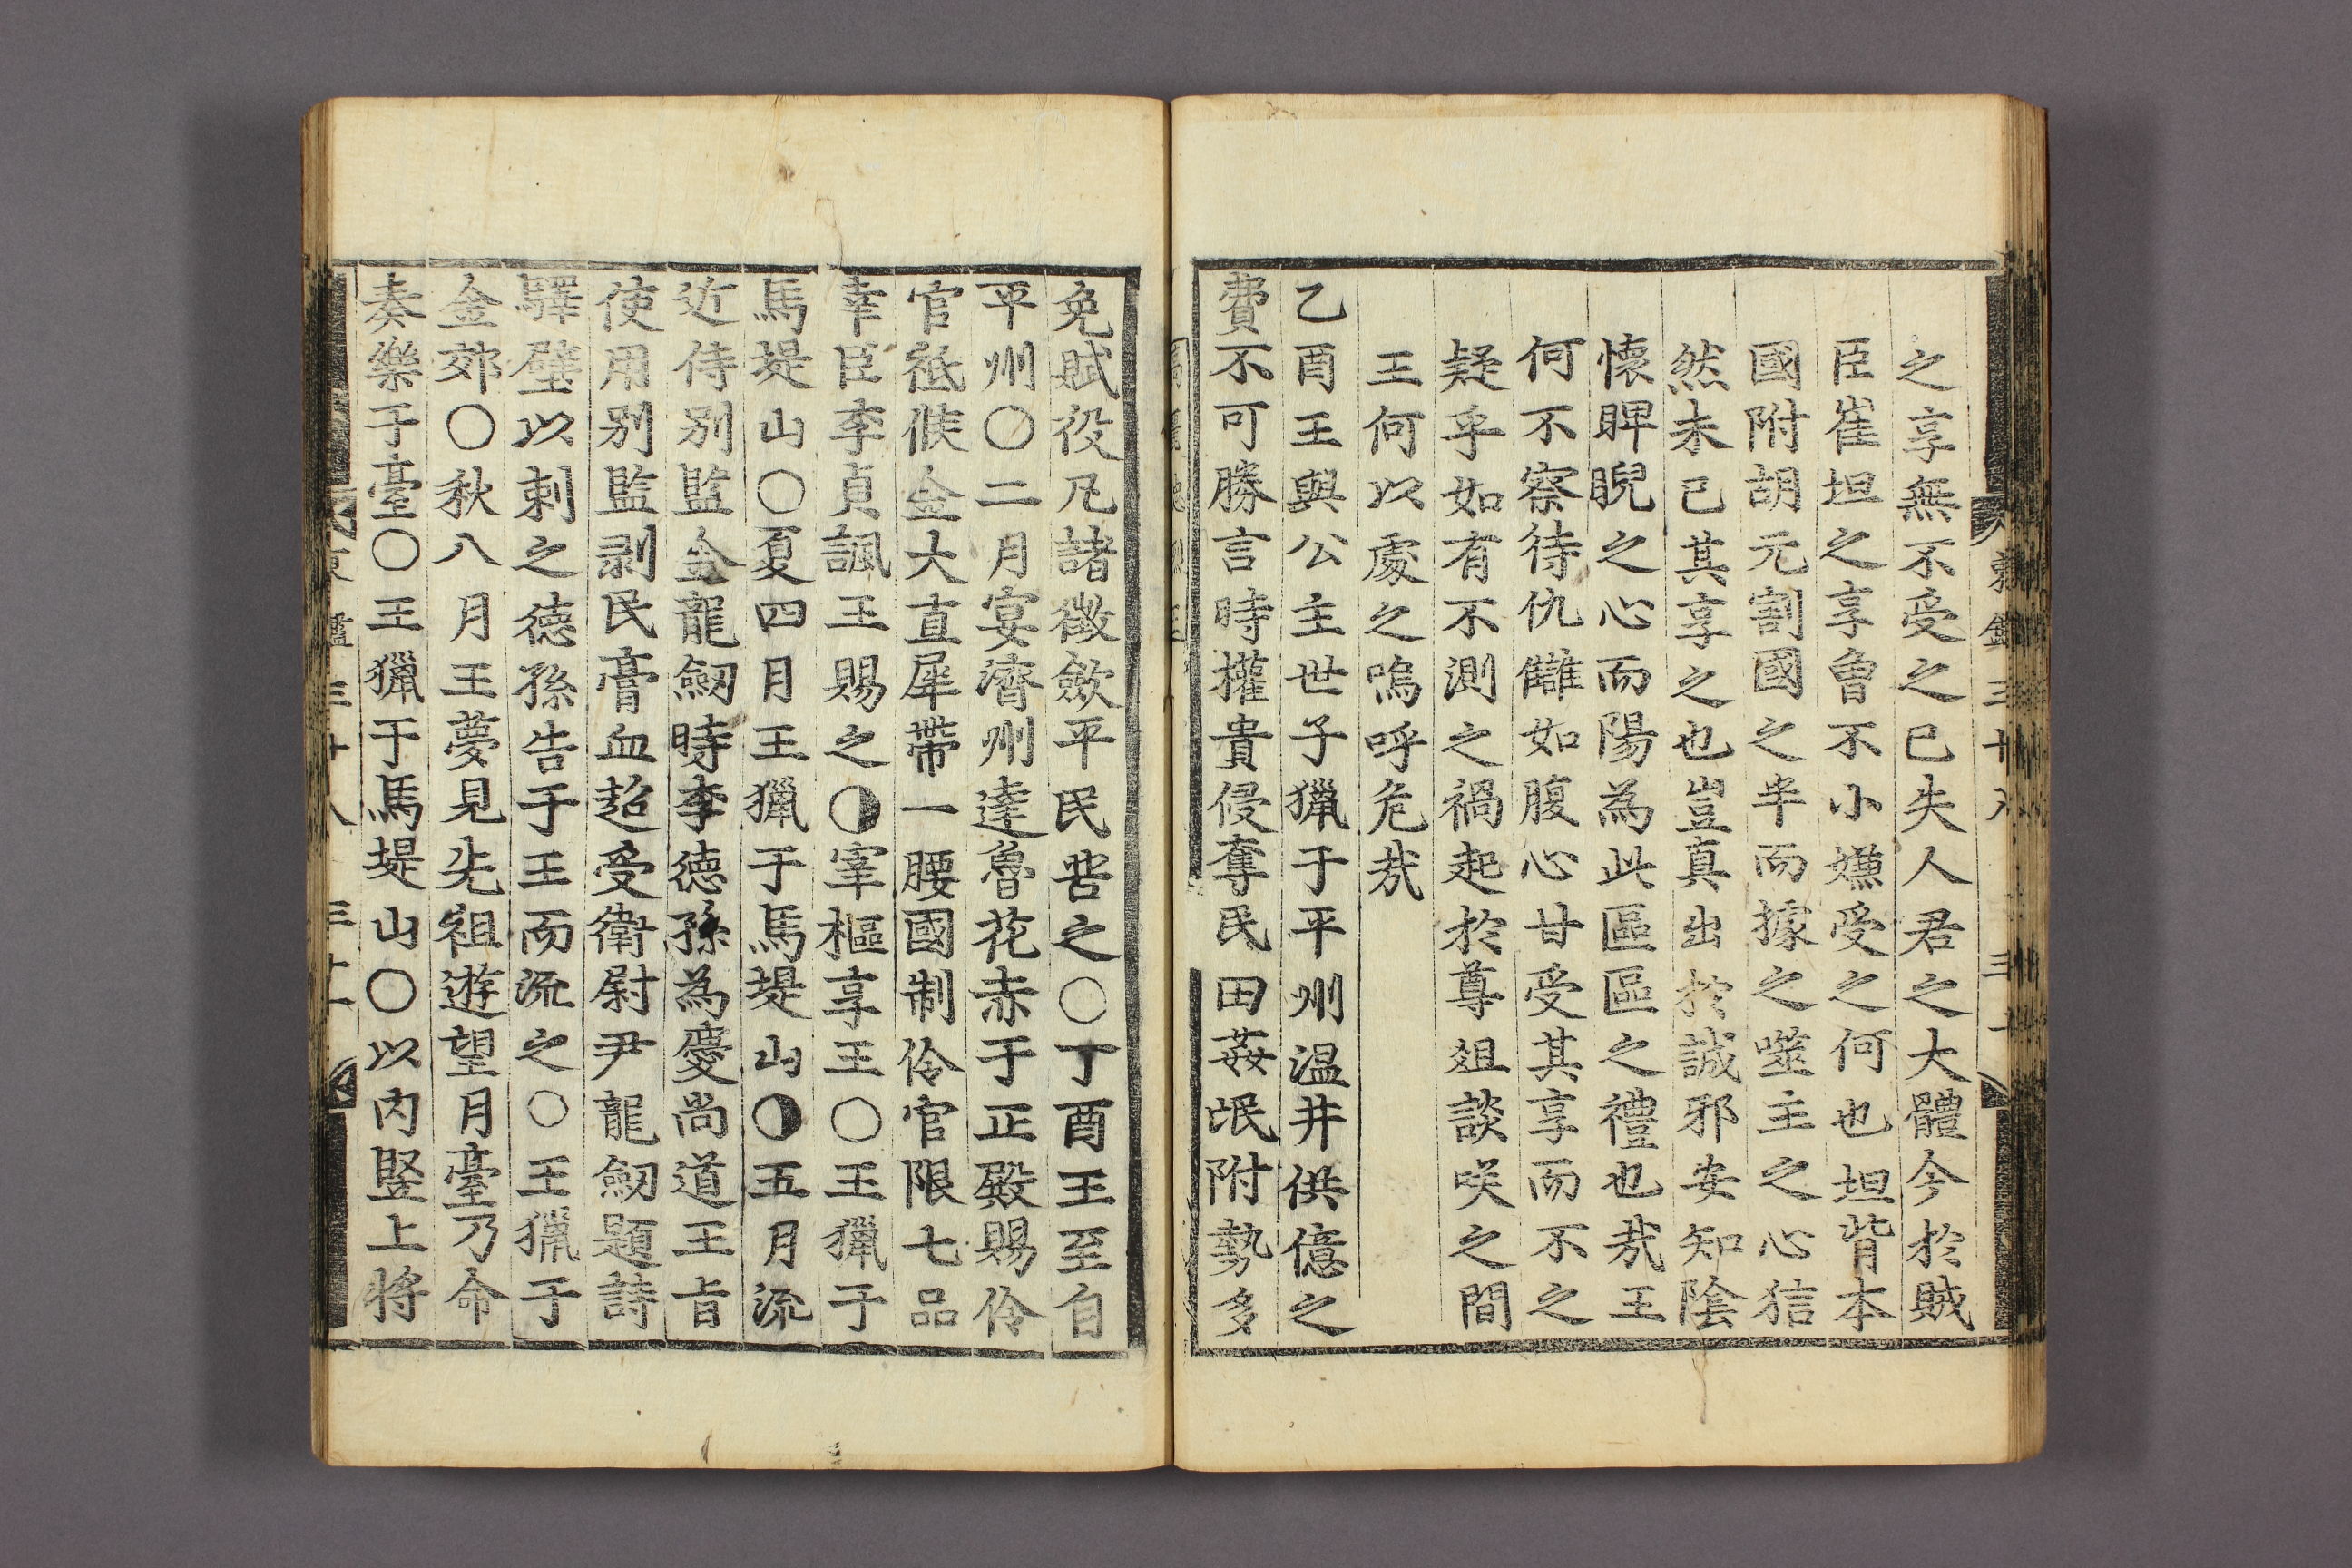 之享無不受之已失人君之大體今於賊
臣崔坦之享曾不小嫌受之何也坦背本
國附胡元割國之半而據之噬主之心狺
然未已其享之也豈真出於誠邪安知陰
懷睥睨之心而陽為此區區之禮也㢤王
何不察待仇讎如腹心甘受其享而不之
疑乎如有不測之禍起於尊俎談咲之間
王何以處之嗚呼危㢤
乙酉王與公主世子獵于平州温井供億之
費不可勝言時權貴侵奪民田姦氓附勢多
免賦役凡諸徵歛平民甞之○丁酉王至自
平州○二月宴濟州達魯花赤于正殿賜伶
官祗候金大直犀帶一腰國制伶官限七品
幸臣李貞諷王賜之◑宰樞享王○王獵于
馬堤山○夏四月王獵于馬堤山◑五月流
近侍別監金龍劒時李德孫為慶尚道王旨
使用別監剥民膏血超受衛尉尹龍劒題詩
驛壁以刺之德孫告于王而流之○王獵于
金郊○秋八月王夢見先祖遊望月臺乃命
奏樂于臺○王獵于馬堤山○以内竪上將
三十八